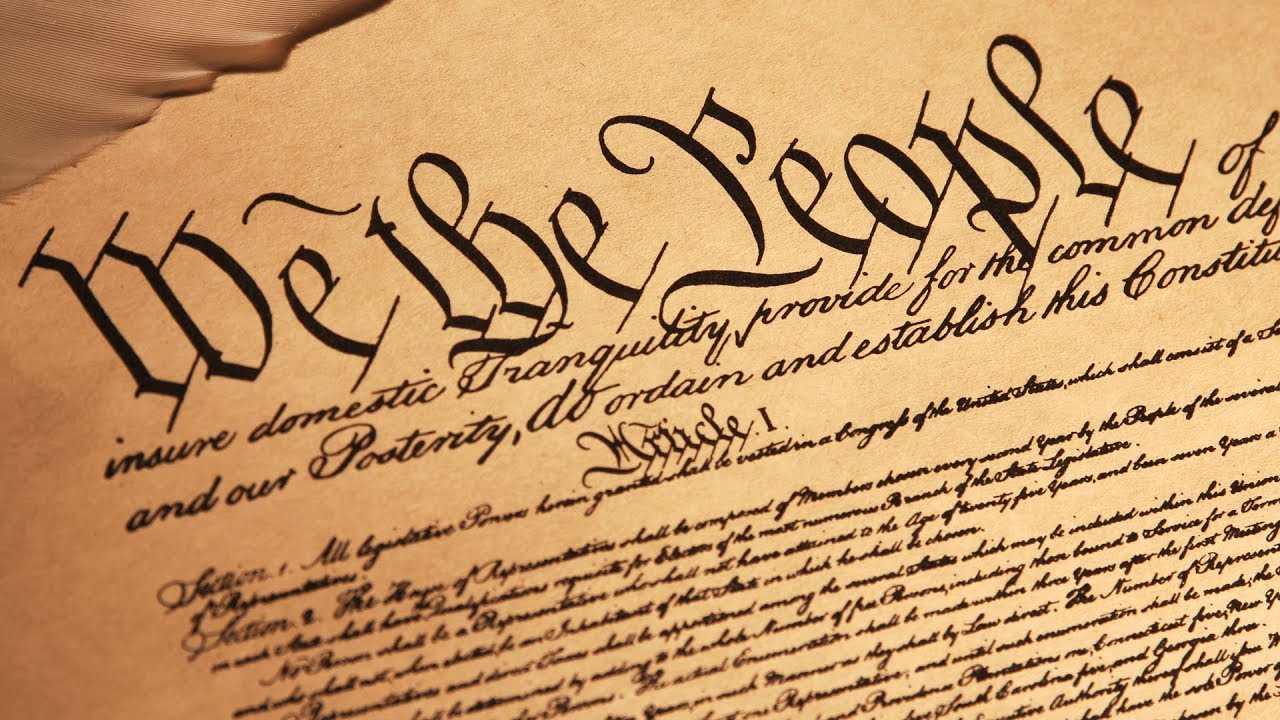 We the People of
insure domestic Tranquility, provide for the common def
and our Posterity, do ordain and establish this Constitu
Article. I.
Section. 1. All legislative Powers herein granted shall be vested in a Congress of the United States, which shall consist of a
of Representatives.
Section. 2. The House of Representatives shall be composed of Members chosen every second Year by the People of the several
in each State shall have the Qualifications requisite for Electors of the most numerous Branch of the State Legislature.
No Person shall be a Representative who shall not have attained to the Age of twenty five Years, and been seven Years a
and who shall not, when elected, be an Inhabitant of that State in which he shall be chosen.
Representatives and direct Taxes shall be apportioned among the several States which may be included within this Union
shall be determined by adding to the whole Number of free Persons, including those bound to Service for a Term
The actual Enumeration shall be made within three Years after the first Meeting
Years, in such Manner as they shall by Law direct. The Number of Represent
and until such enumeration shall be made, the
and Providence Plantations one, Connecticut five, New York
South Carolina five, and Georgia three.
Executive Authority thereof shall issue
shall have the sole Power